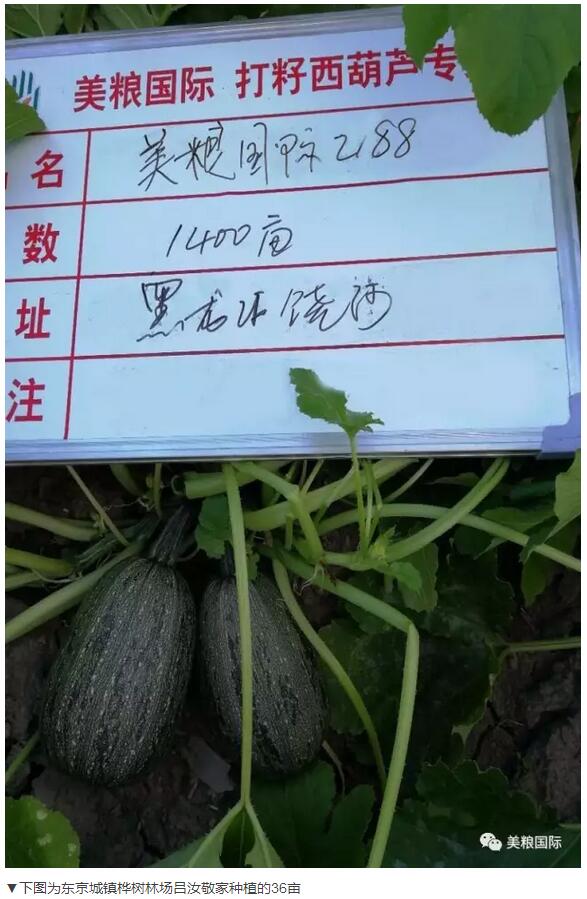 美粮国际 打籽西葫芦专
名 美粮国际2188
数 1400亩
址 黑龙江饶河
注
美粮国际
▼下图为东京城镇桦树林场吕汝敬家种植的36亩